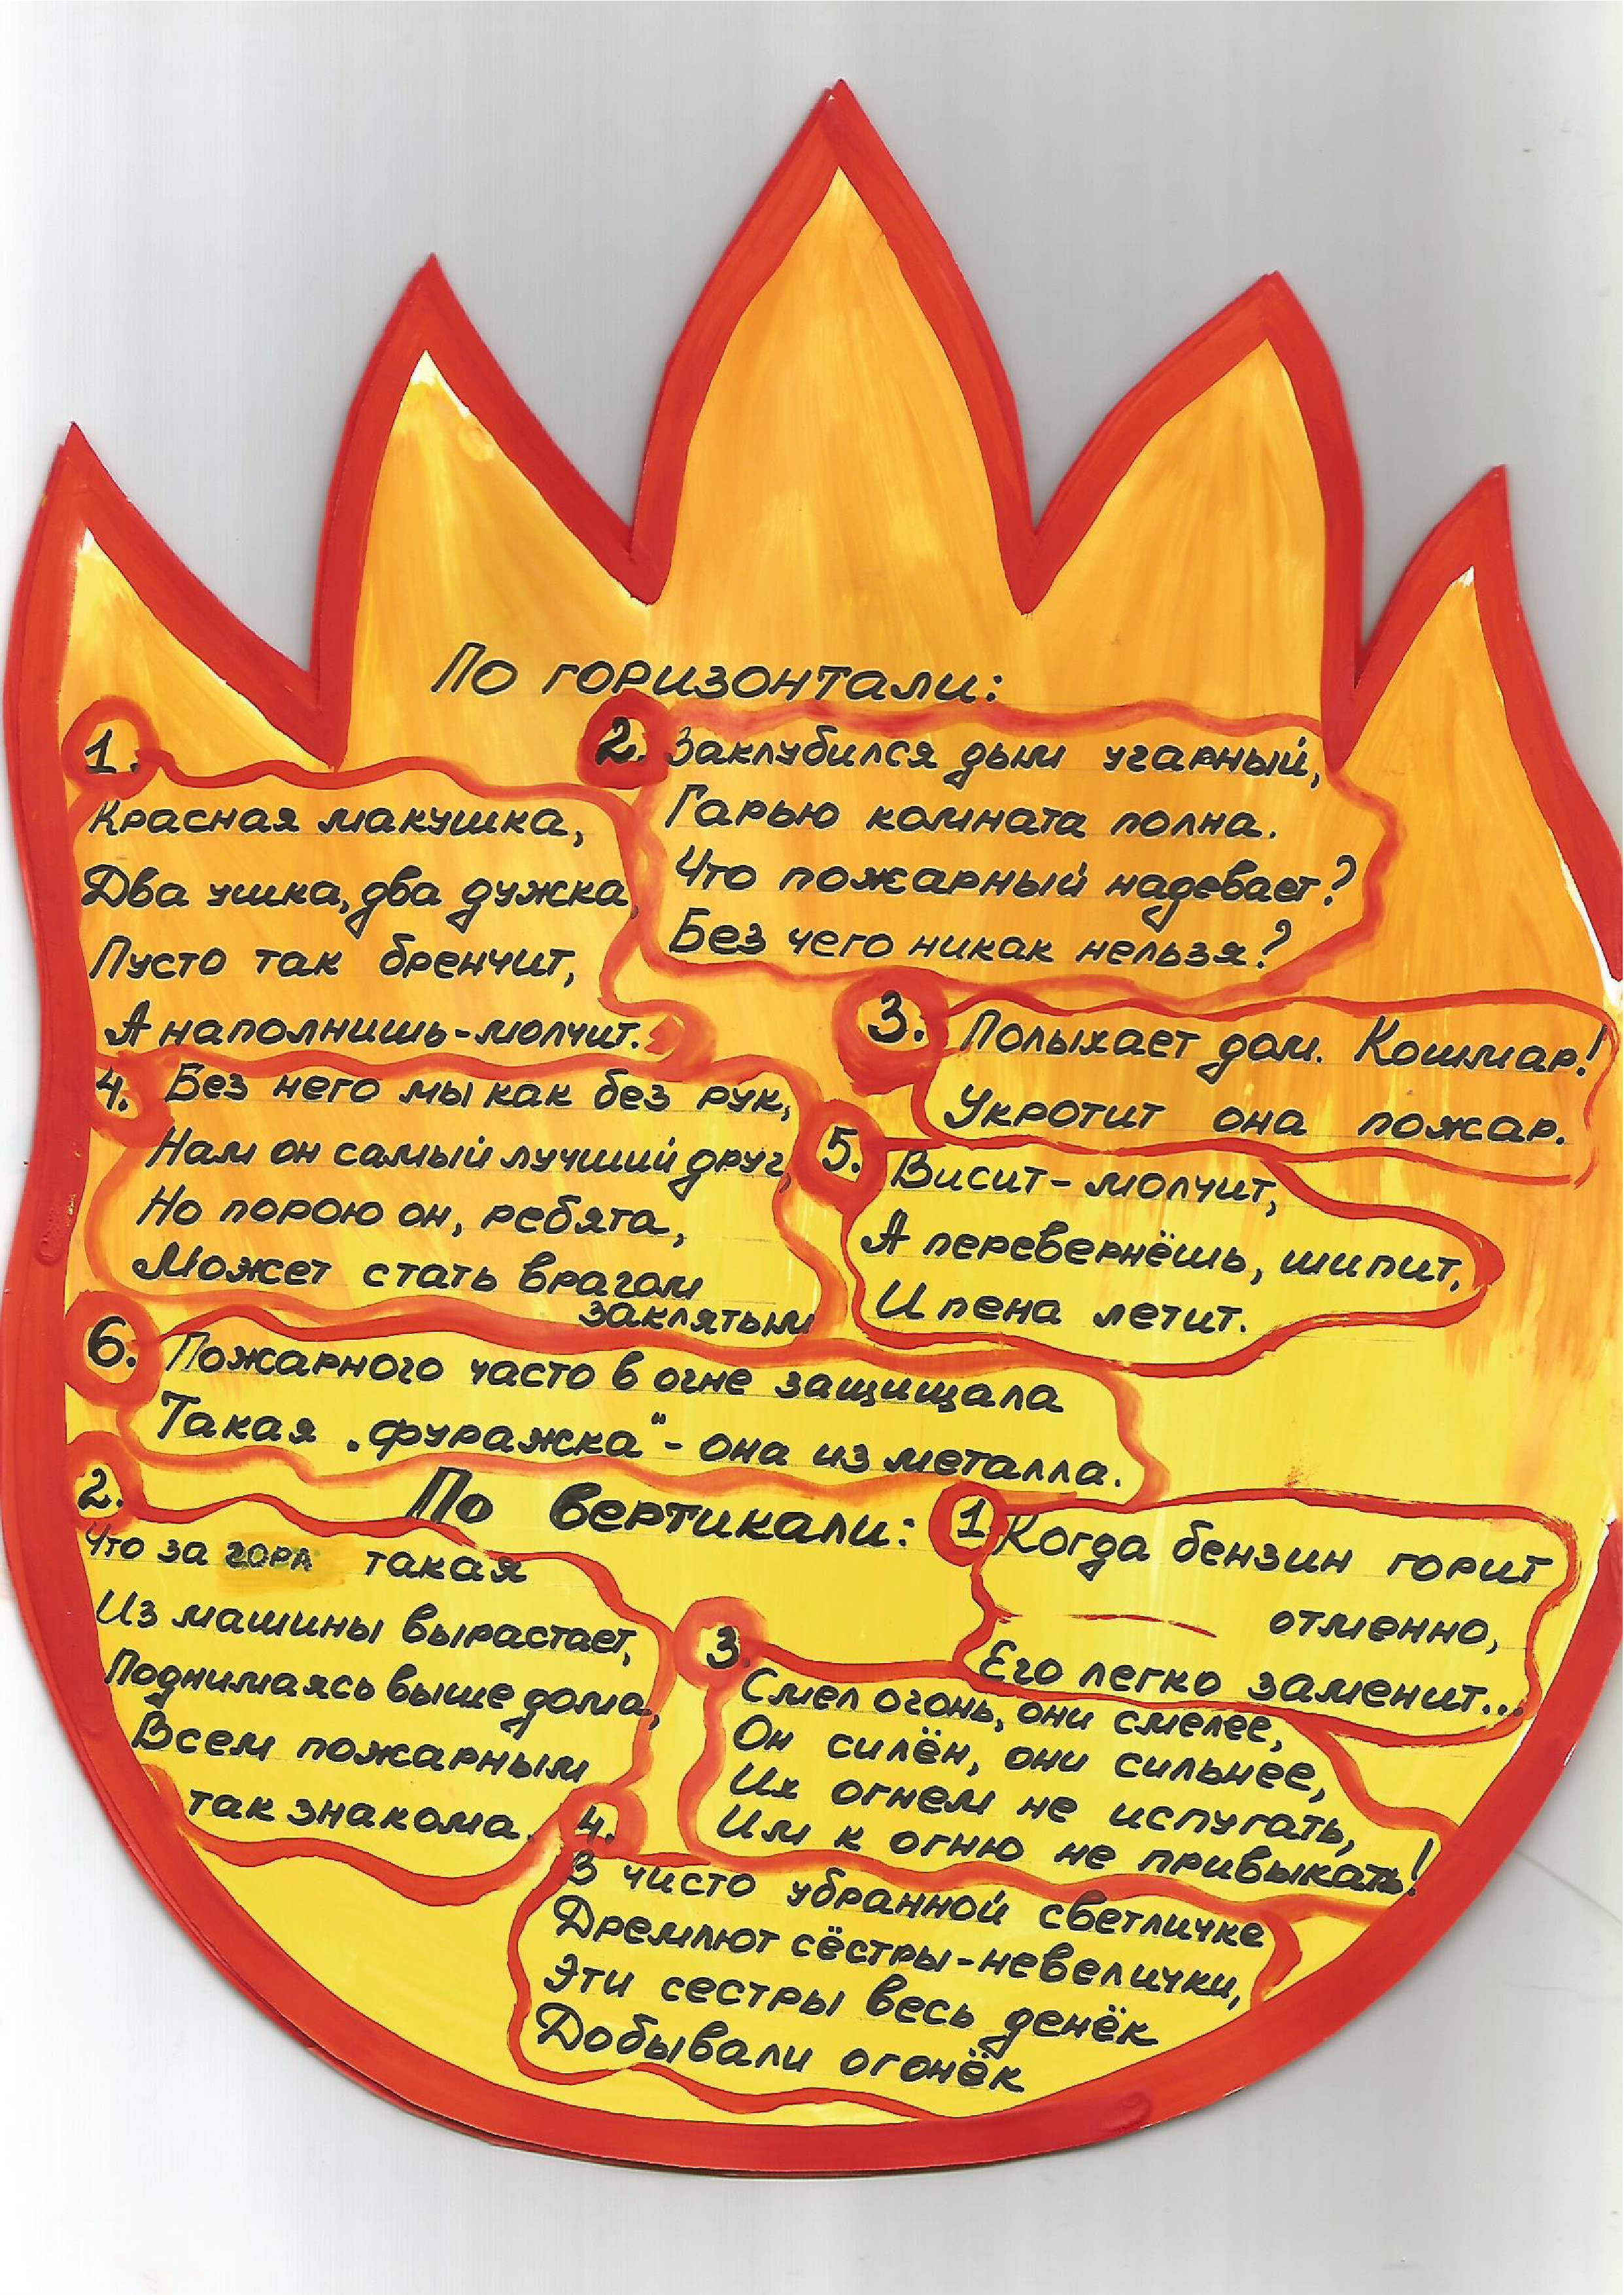 По горизонтали:
1.
Красная макушка,
Два ушка, два дужка,
Пусто так бренчит,
А наполнишь-молчит.
2. Заклубился дым угарный,
Гарью комната полна.
Что пожарный надевает?
Без чего никак нельзя?
3. Полыхает дом. Кошмар!
Укротит она пожар.
4. Без него мы как без рук,
Нам он самый лучший друг,
Но порою он, ребята,
Может стать врагом
заклятым
5. Висит-молчит,
А перевернёшь, шипит,
И пена летит.
6. Пожарного часто в огне защищала
Такая „фуражка“- она из металла.
По вертикали:
1 Когда бензин горит
отменно,
Его легко заменит...
2.
Что за гора такая
Из машины вырастает,
Поднимаясь выше дома,
Всем пожарным
так знакома.
3.
Смел огонь, они смелее,
Он силён, они сильнее,
Их огнем не испугать,
Им к огню не привыкать!
4.
В чисто убранной светличке
Дремлют сёстры-невелички,
Эти сестры весь денёк
Добывали огонёк